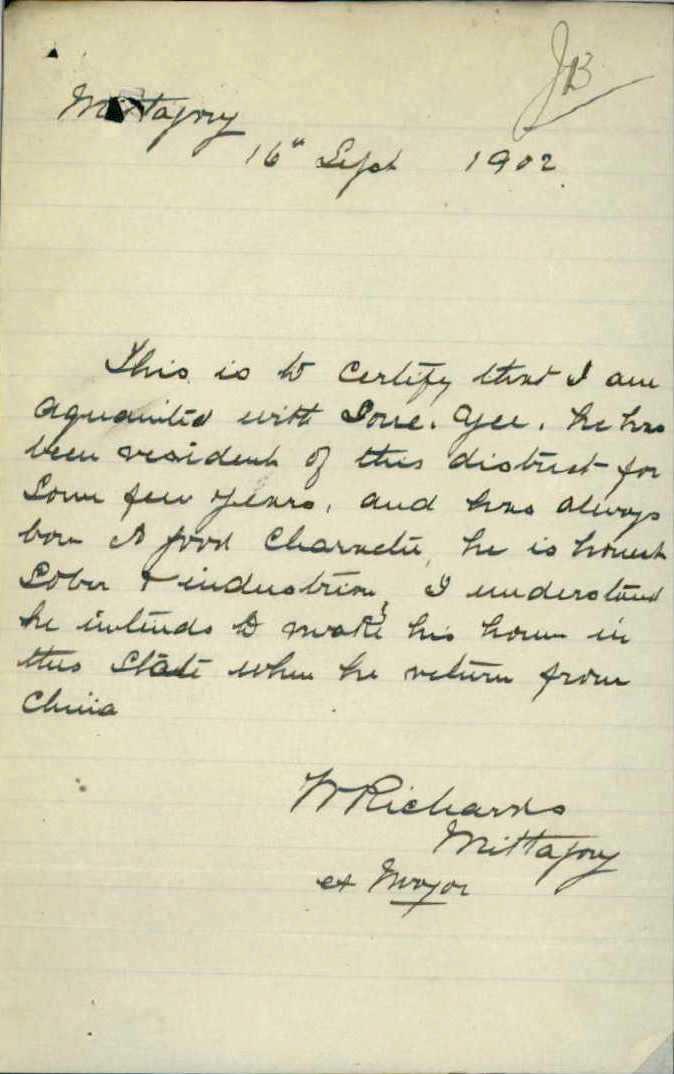 JB
Mittagong
16th Sept 1902
This is to certify that I am
aquainted with Loue. Yee. he has
been resident of this district for
some few years, and has always
bore a good character, he is honest
sober & industrious, I understand
he intends to make his home in
this state when he return from
China
W Richards
Mittagong
ex Mayor